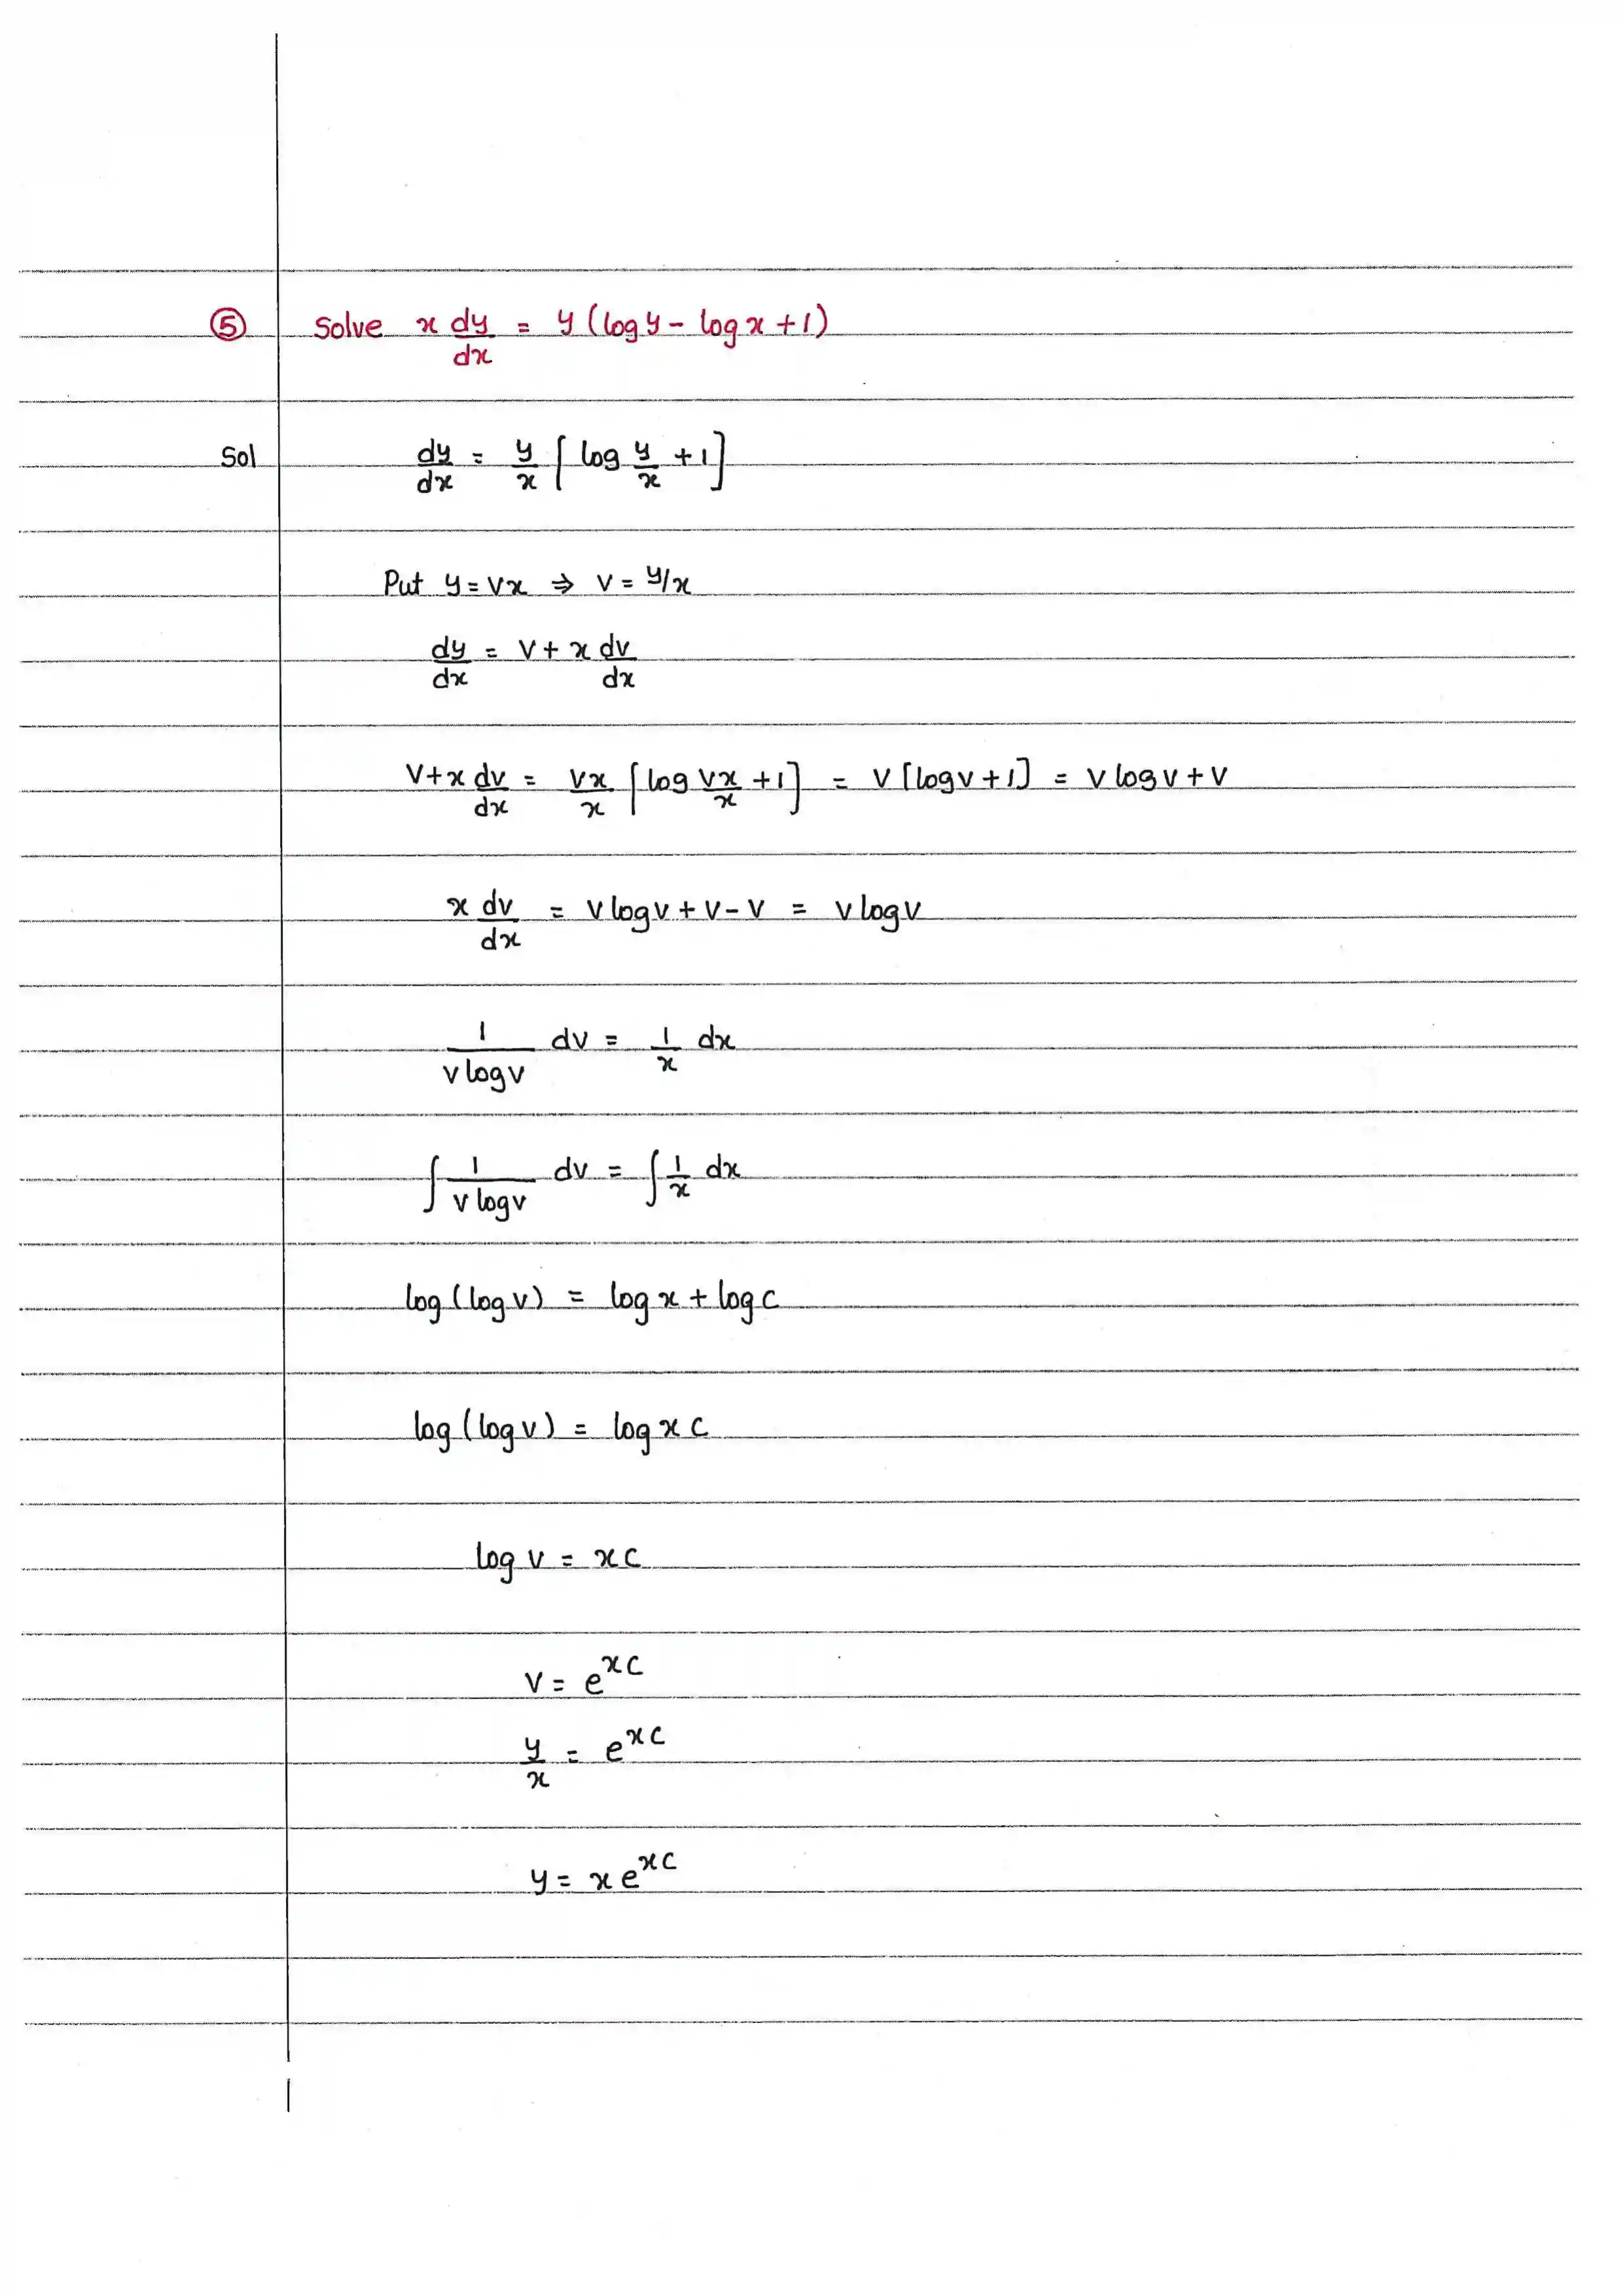 ⑤ Solve x dy/dx = y (log y - log x + 1)
Sol dy/dx = y/x [log y/x + 1]
Put y = vx ⇒ v = y/x
dy/dx = v + x dv/dx
v + x dv/dx = vx/x [log vx/x + 1] = v [log v + 1] = v log v + v
x dv/dx = v log v + v - v = v log v
1/(v log v) dv = 1/x dx
∫ 1/(v log v) dv = ∫ 1/x dx
log (log v) = log x + log c
log (log v) = log x c
log v = x c
v = e^{xc}
y/x = e^{xc}
y = x e^{xc}